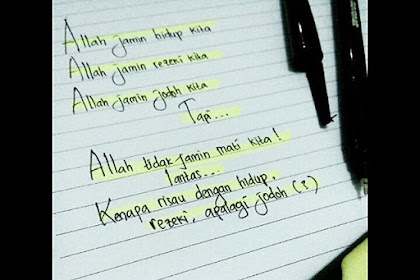 Allah jamin hidup kita
Allah jamin rezeki kita
Allah jamin jodoh kita
Tapi...
Allah tidak jamin mati kita!
lantas...
Kenapa risau dengan hidup,
rezeki, apalagi jodoh (?)